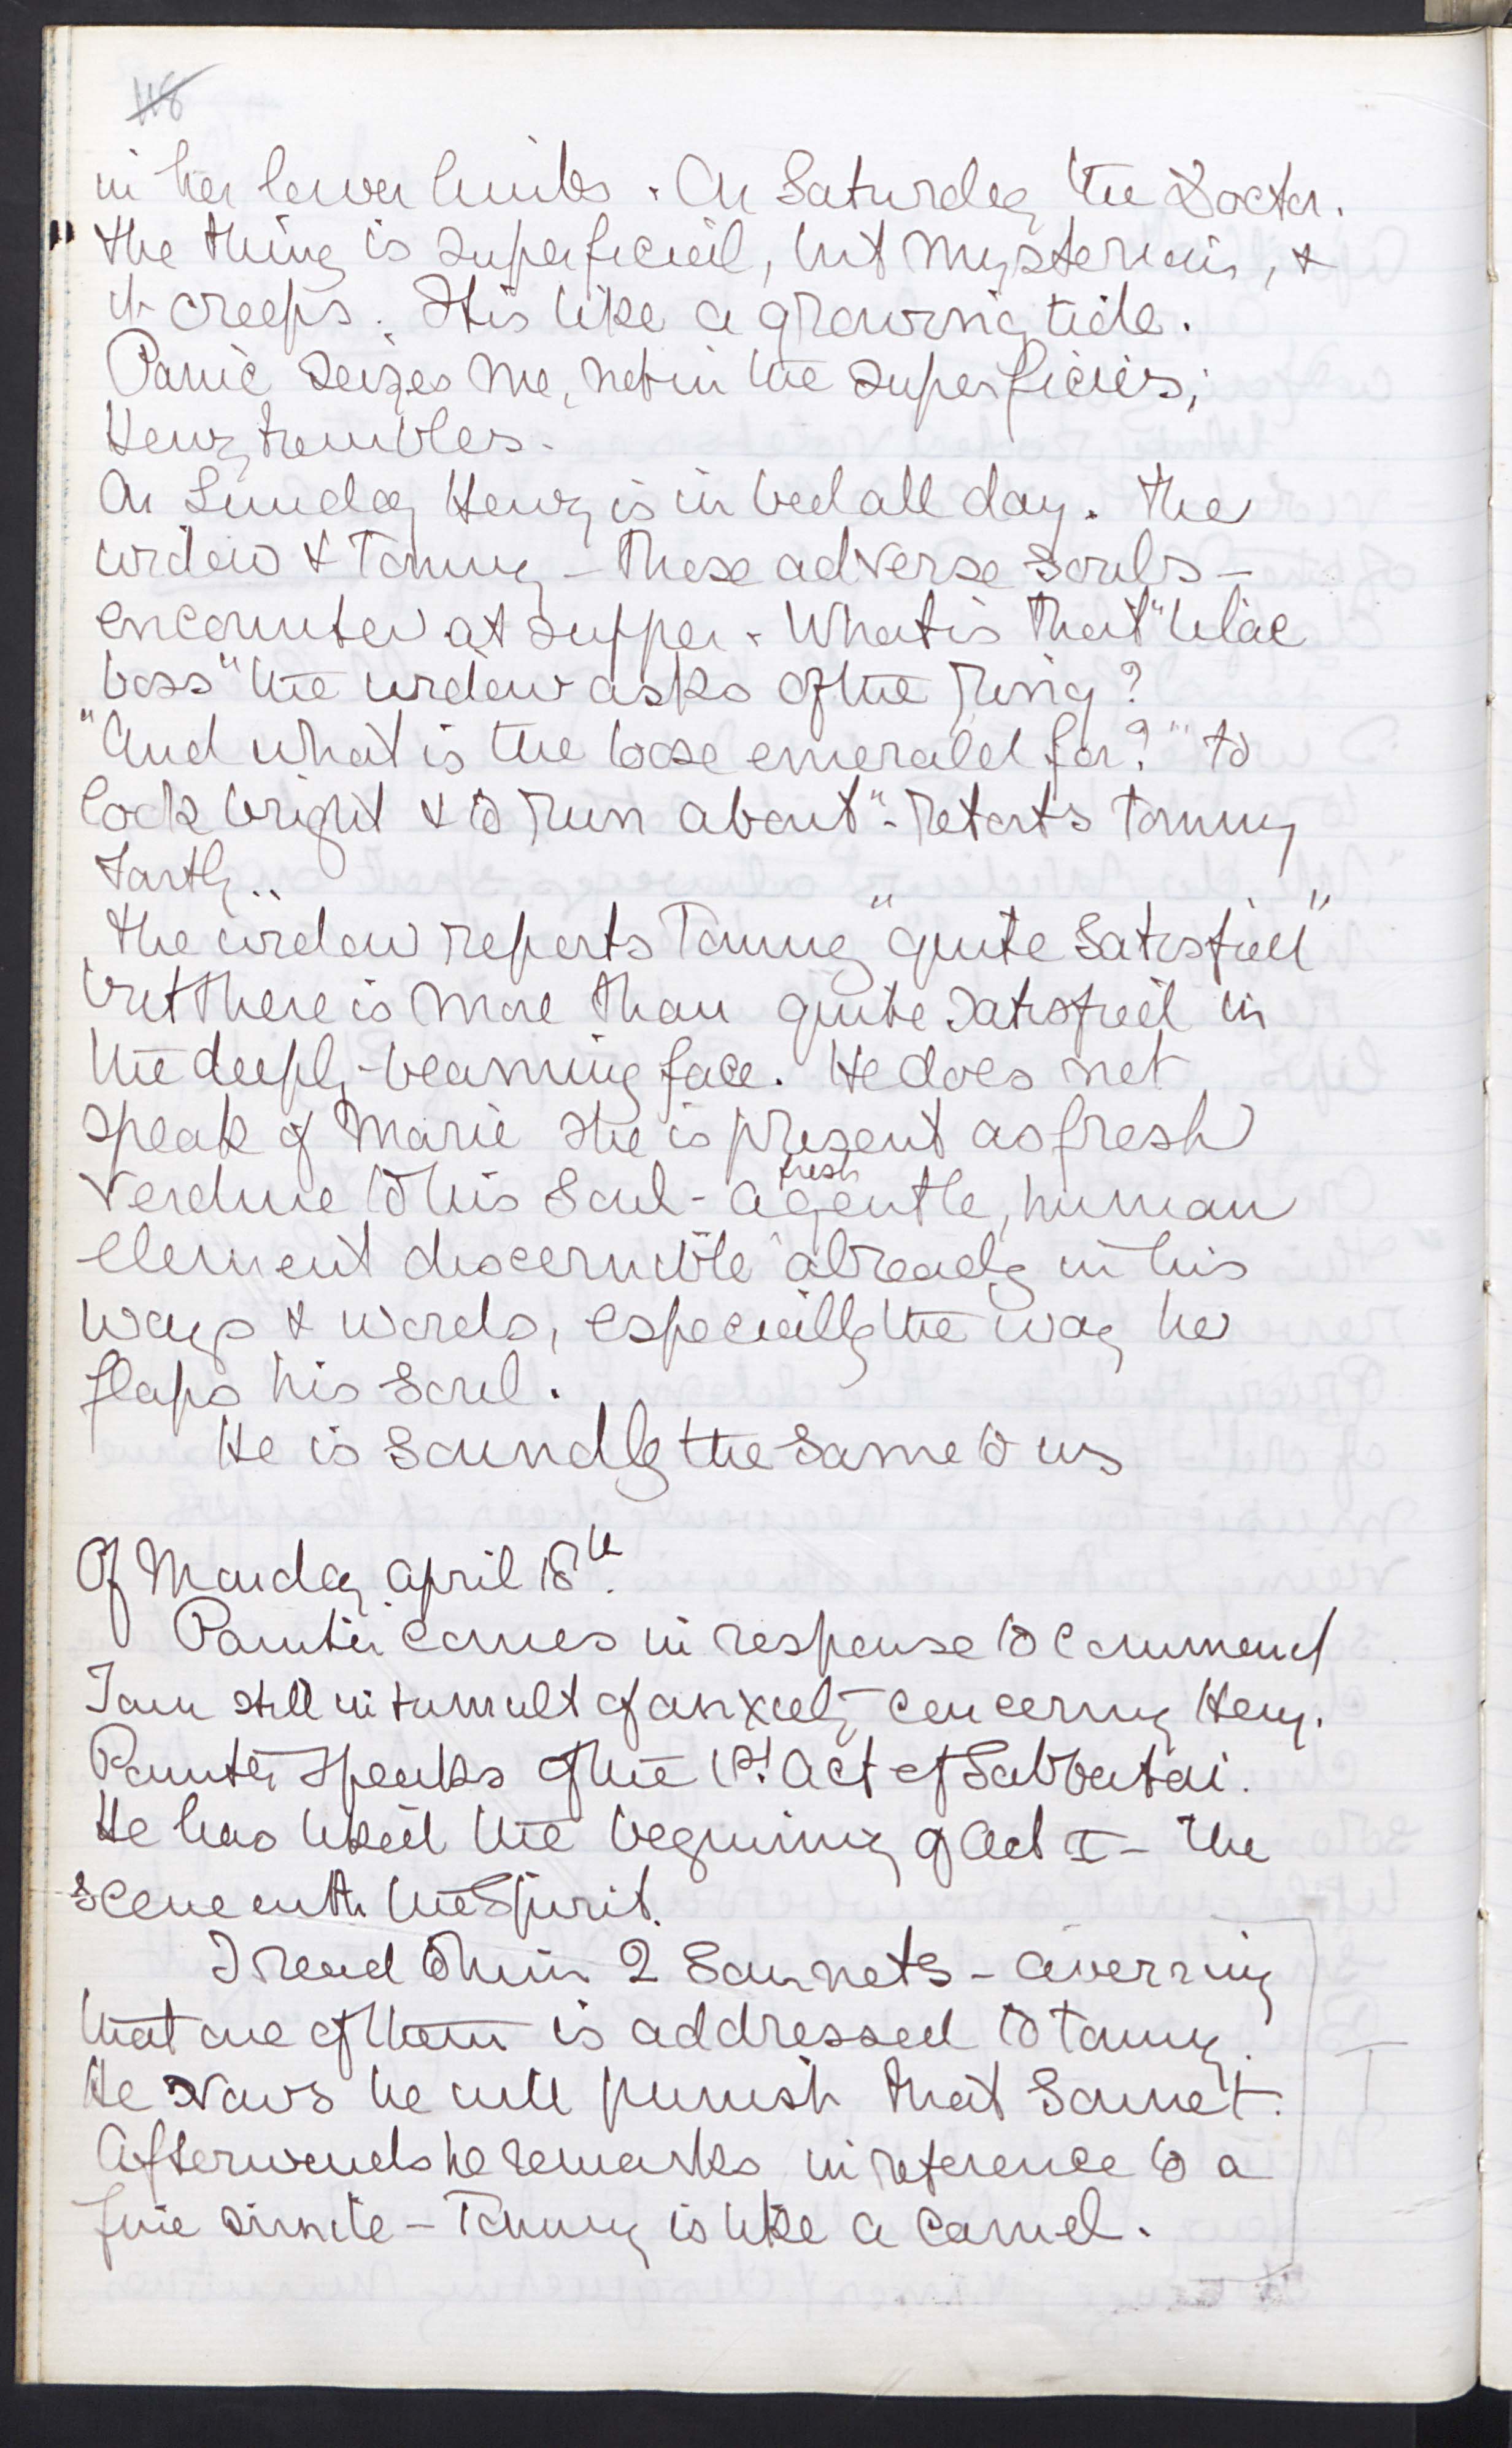 118
in her lower limbs. On Saturday the Doctor.
"the thing is superficial, but mysterious, &
it creeps. It is like a growing tide.
Panic seizes me, not in the superficies;
Henry trembles.
On Sunday Henry is in bed all day. The
widow & Tommy – these adverse souls –
encounter at supper. What is that "lilac
boss" the widow asks of the ring?
"And what is the loose emerald for?" "to
look bright & to run about" – retorts Tommy
Tartly..
The widow reports Tommy "quite satisfied"
but there is more than quite satisfied in
the deeply-beaming face. He does not
speak of Marie she is present as fresh
verdure to his soul – a fresh gentle, human
element discernible already in his
ways & words, especially the way he
flaps his soul.
He is soundly the same to us
Of Monday April 18th.
Painter comes in response to command
I am still in tumult of anxiety concerning Heny.
Painter speaks of the 1st Act of Sabbatai.
He has liked the beginning of Act I – the
scene with the Spirit.
I read to him 2 Sonnets – averring
that one of them is addressed to Tommy.
He vows he will punish that Sonnet.
Afterwards he remarks in reference to a
fine simile – Tommy is like a camel.
I